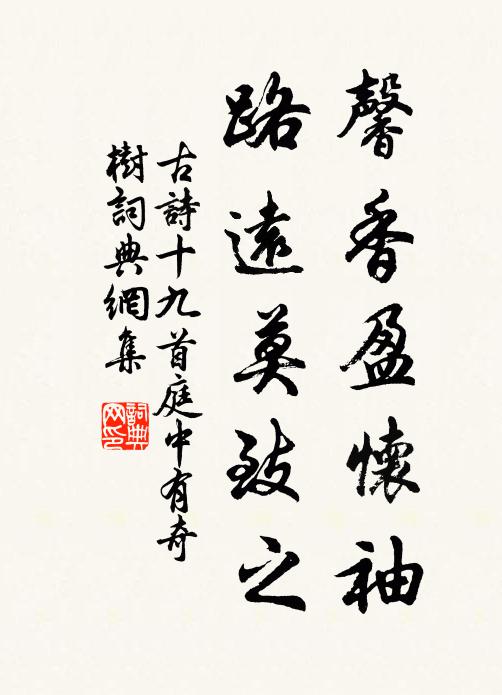 馨香盈懷袖
路遠莫致之
古詩十九首庭中有奇
樹詞典網集
詞典
网印